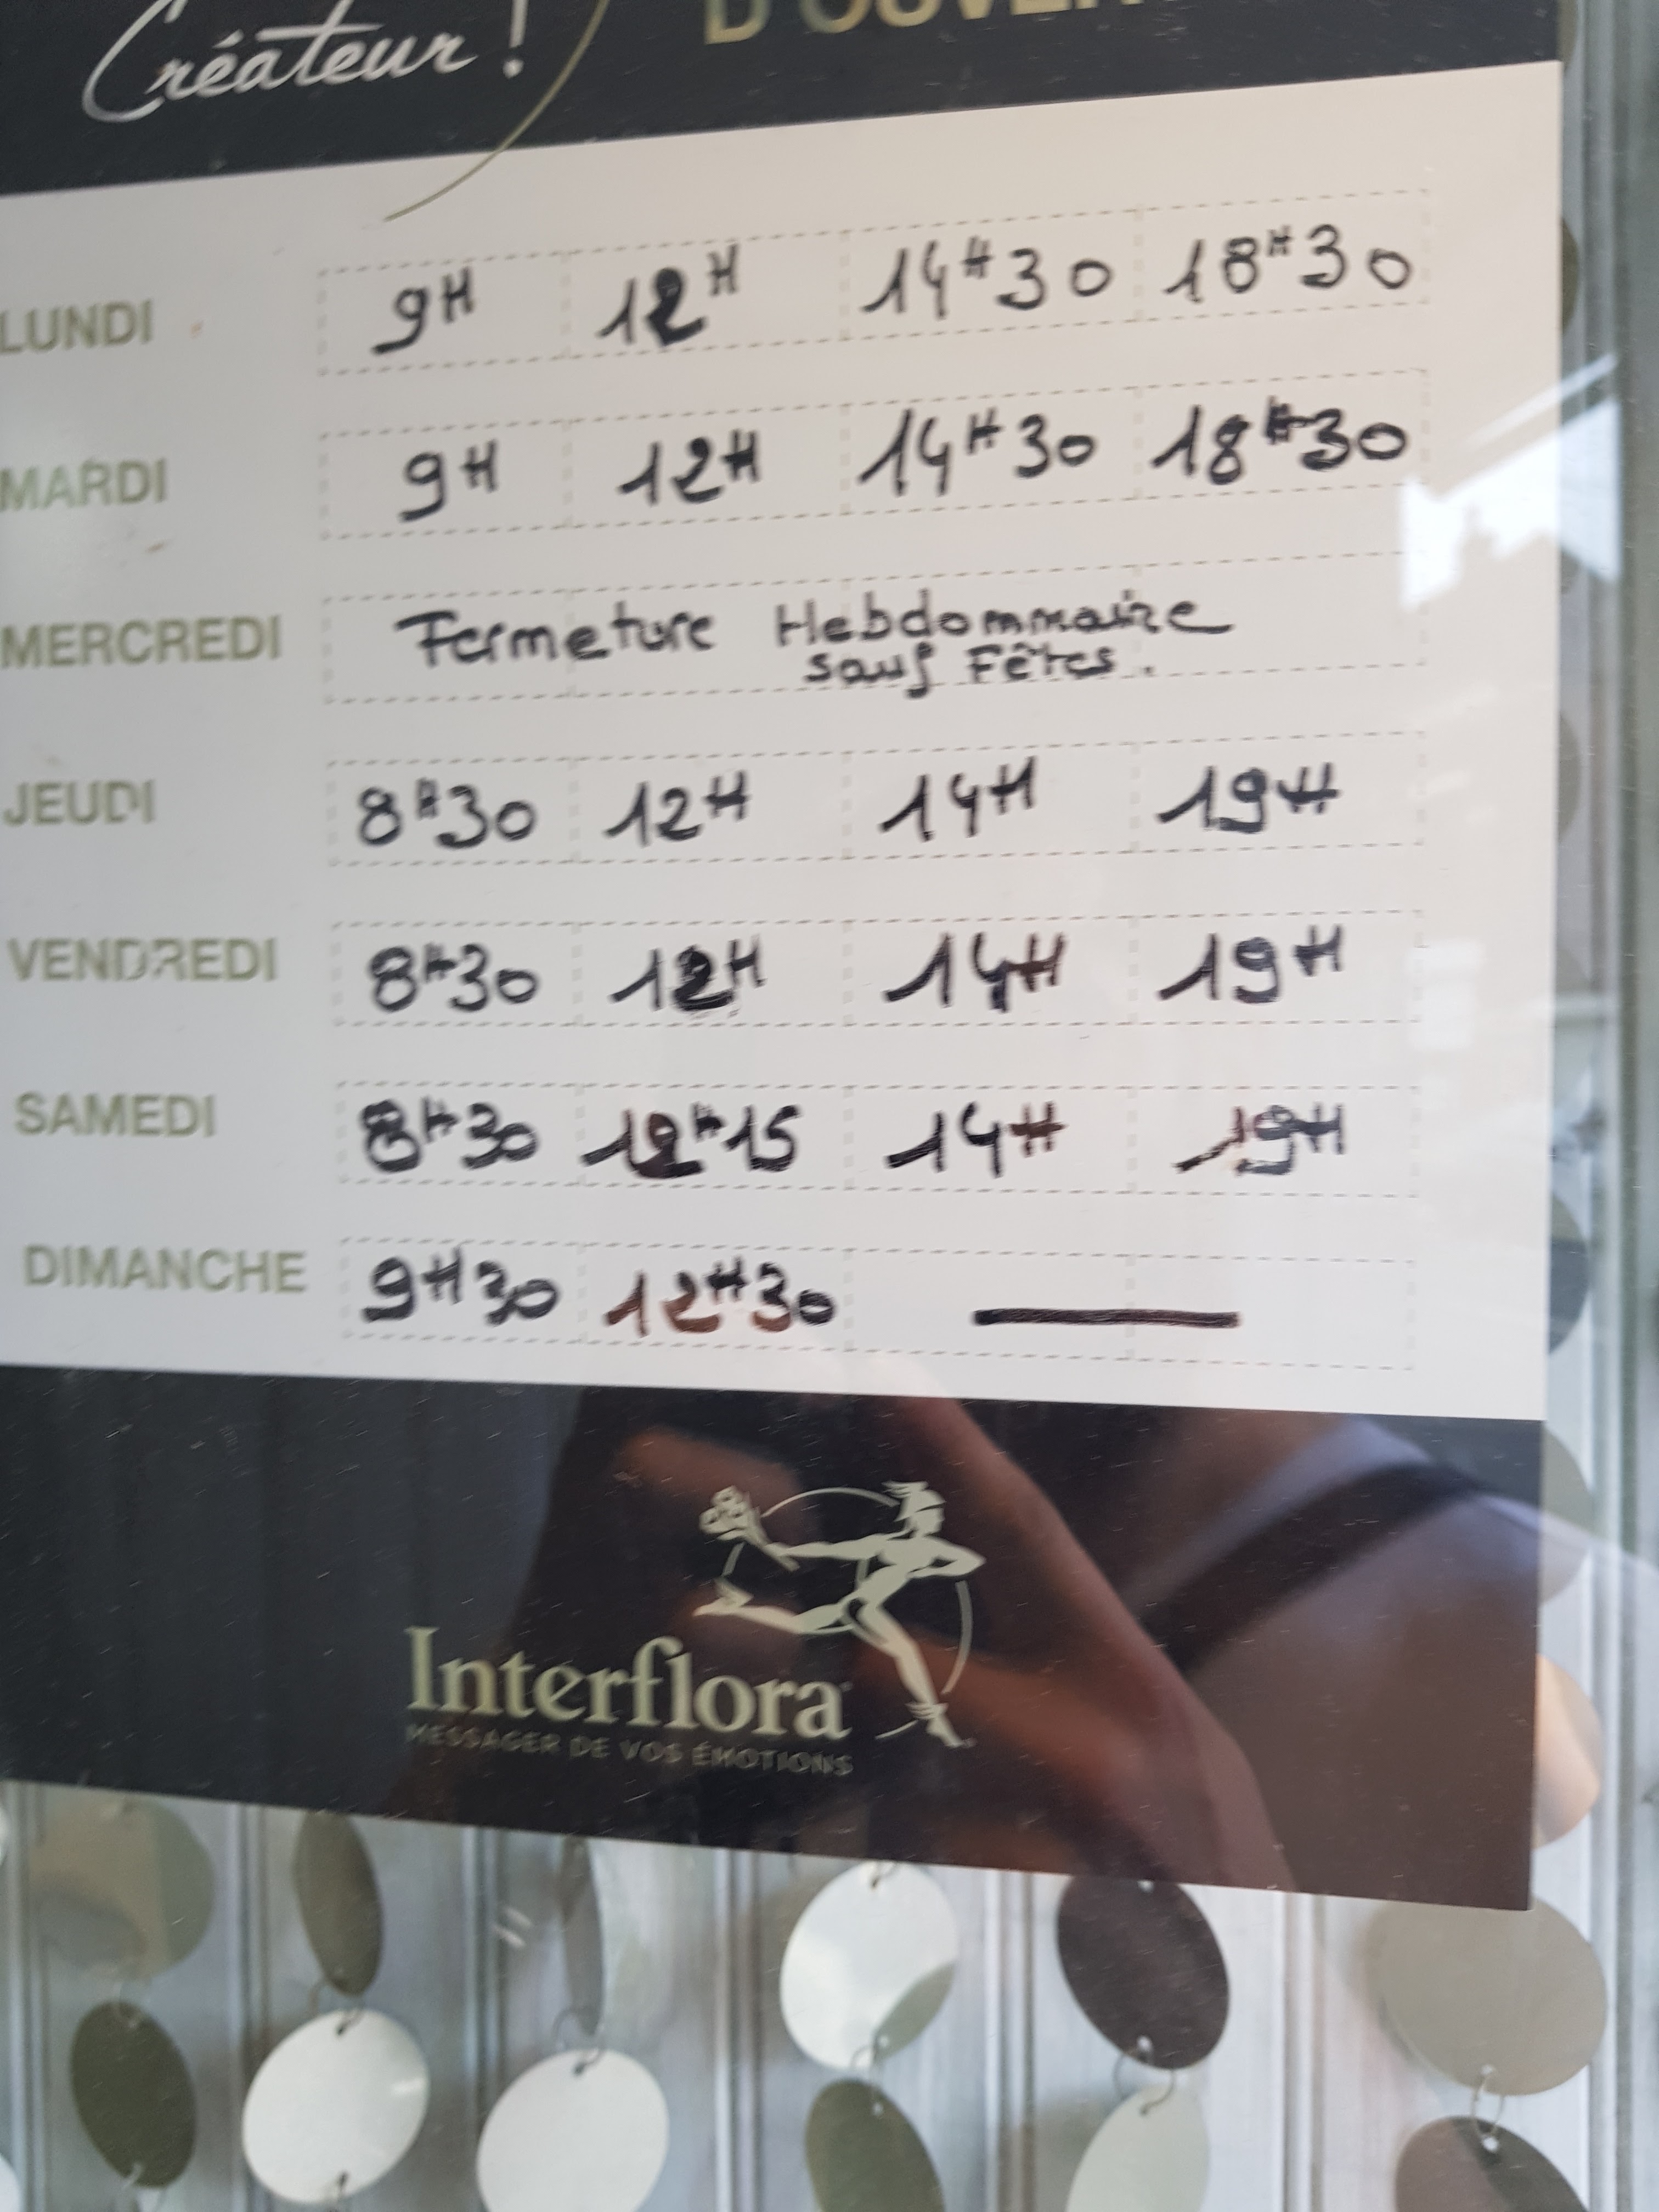 Créateur !
D'OUVER
LUNDI 9H 12H 14H30 18H30
MARDI 9H 12H 14H30 18H30
MERCREDI Fermeture Hebdommaire
sauf Fêtes.
JEUDI 8H30 12H 14H 19H
VENDREDI 8H30 12H 14H 19H
SAMEDI 8H30 12H15 14H 19H
DIMANCHE 9H30 12H30 —
Interflora
MESSAGER DE VOS ÉMOTIONS